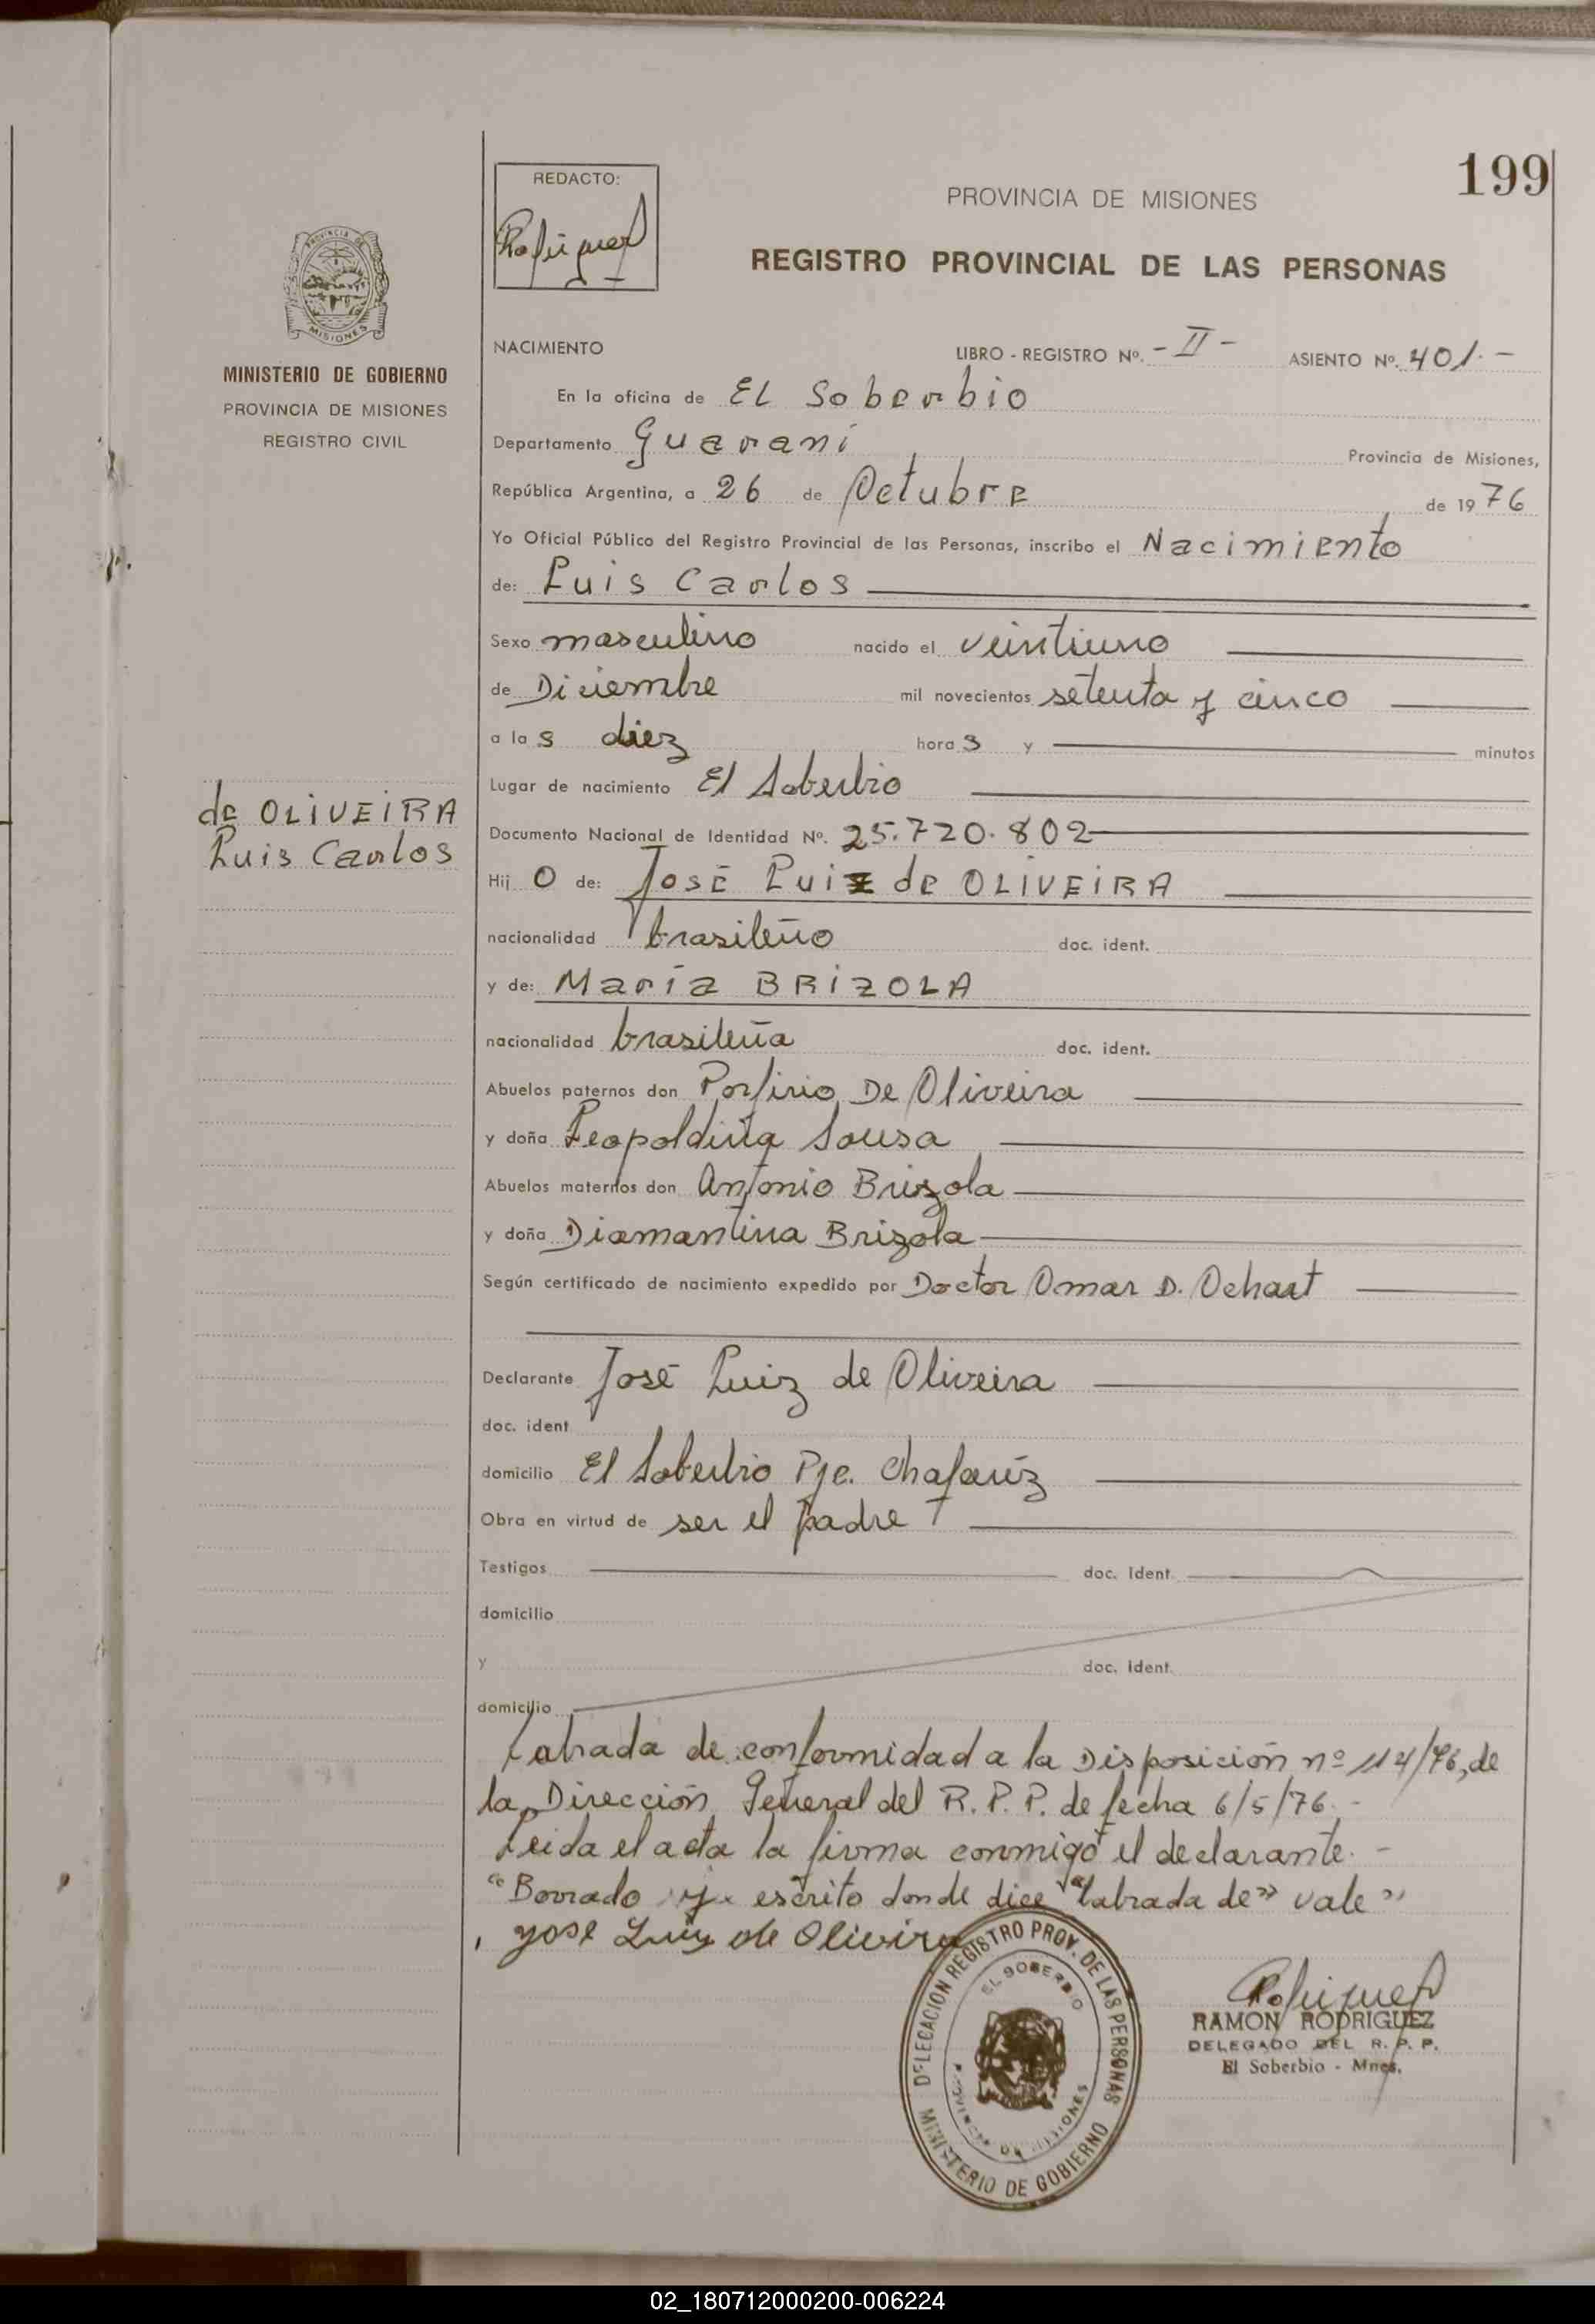 199
REDACTO:
Rodriguez
PROVINCIA DE MISIONES
REGISTRO PROVINCIAL DE LAS PERSONAS
PROVINCIA DE
MISIONES
MINISTERIO DE GOBIERNO
PROVINCIA DE MISIONES
REGISTRO CIVIL
NACIMIENTO LIBRO - REGISTRO Nº. - II - ASIENTO Nº. 401.-
En la oficina de El Soberbio
Departamento Guaraní Provincia de Misiones,
República Argentina, a 26 de Octubre de 1976
Yo Oficial Público del Registro Provincial de las Personas, inscribo el Nacimiento
de: Luis Carlos
Sexo masculino nacido el veintiuno
de Diciembre mil novecientos setenta y cinco
a las diez horas y minutos
Lugar de nacimiento El Soberbio
de OLIVEIRA
Luis Carlos
Documento Nacional de Identidad Nº. 25.720.802
Hijo de: José Luiz de OLIVEIRA
nacionalidad brasileño doc. ident.
y de: María BRIZOLA
nacionalidad brasileña doc. ident.
Abuelos paternos don Porfirio De Oliveira
y doña Leopoldina Sousa
Abuelos maternos don Antonio Brizola
y doña Diamantina Brizola
Según certificado de nacimiento expedido por Doctor Omar D. Ochart
Declarante José Luiz de Oliveira
doc. ident
domicilio El Soberbio Pje. Chafaríz
Obra en virtud de ser el padre
Testigos doc. ident.
domicilio
y doc. ident.
domicilio
Labrada de conformidad a la Disposición nº 114/76, de
la Dirección General del R. P. P. de fecha 6/5/76.-
Leida el acta la firma conmigo el declarante.-
"Borrado y escrito donde dice "labrada de" vale"
José Luiz de Oliveira
DELEGACION REGISTRO PROV. DE LAS PERSONAS
EL SOBERBIO
PROVINCIA DE MISIONES
MINISTERIO DE GOBIERNO
Rodriguez
RAMON RODRIGUEZ
DELEGADO DEL R. P. P.
El Soberbio - Mnes.
02_180712000200-006224